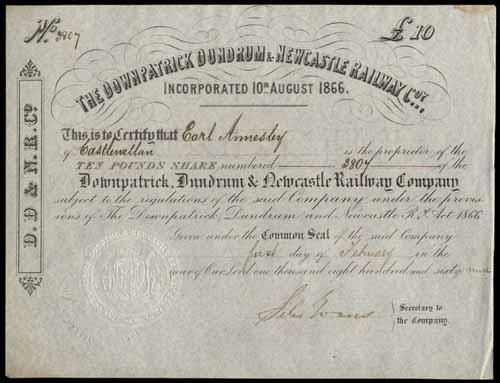 No. 2807 £10
THE DOWNPATRICK DUNDRUM & NEWCASTLE RAILWAY Coy.
INCORPORATED 10th AUGUST 1866.
This is to Certify that Earl Annesley
of Castlewellan is the proprietor of the
TEN POUNDS SHARE numbered 2807 of the
Downpatrick, Dundrum & Newcastle Railway Company
subject to the regulations of the said Company under the provis-
ions of The Downpatrick, Dundrum and Newcastle Ry. Act 1866
Given under the Common Seal of the said Company
first day of February in the
year of Our Lord one thousand eight hundred and sixty nine
Secretary to
the Company.
D. D & N. R. Co.